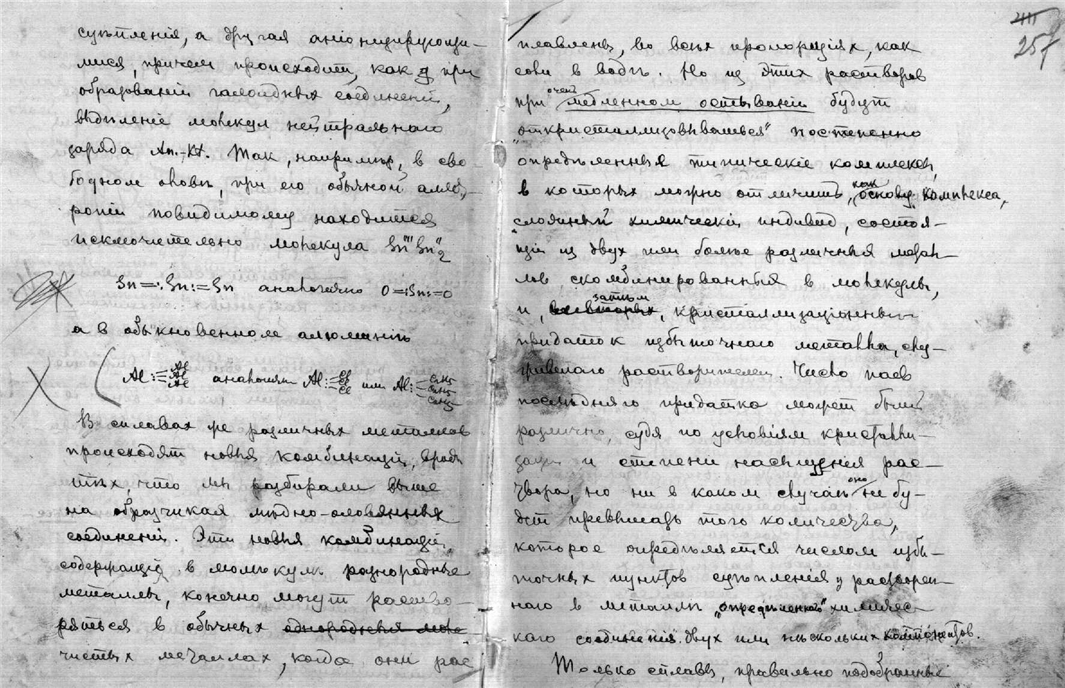 сцѣпленія, а другая аніонидирующи-
мися, причем происходит, как и при
образованіи галоидных соединеній,
выдѣленіе молекул нейтральнаго
заряда An.-Kt. Так, напримѣр, в сво
бодном оловѣ, при его обычной аллот-
ропіи повидимому находится
исключительно молекула Sn'''' Sn''₂
Sn=:Sn:=Sn аналогично O=:Sn:=O
а в обыкновенном алюминіи
Al:≡ Al Al Al аналогии Al:≡ Cl Cl Cl или Al:
В сплавах же различных металлов
происходят новыя комбинаціи, вродѣ
тѣх, что мы разбирали выше
на образчиках мѣдно-оловянных
соединеній. Эти новыя комбинаціи,
содержащія в молекулѣ разнородные
металлы, конечно могут раство-
ряться в обычных
чистых металлах, когда они рас
257
плавлены, во всѣх пропорціях, как
соли в водѣ. Но из этих растворов
при очень медленном остываніи будут
"откристаллизовываться" постепенно
опредѣленные типическіе комплексы,
в которых можно отличить, как основу комплекса,
сложный химическій индивид, состоя-
щій из двух или болѣе различных метал
лов скомбинированных в молекулы,
и, затѣм, кристаллизаціонный
придаток избыточнаго металла, слу-
живаго растворителем. Число паев
послѣдняго придатка может быть
различно, судя по условіям кристалли-
заціи и степени насыщенія рас-
твора, но ни в каком случаѣ оно не бу-
дет превышать того количества,
которое опредѣляется числом избы-
точных пунктов сцѣпленія у растворен-
наго в металлѣ "опредѣленнаго" химичес-
каго соединенія двух или нѣскольких компонентов.
Только сплавы, правильно подобранные